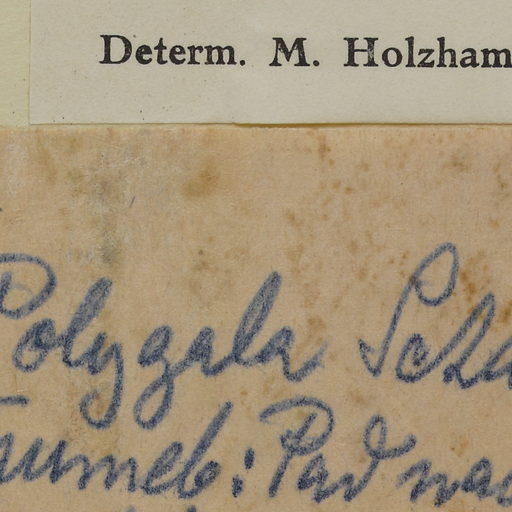 Determ. M. Holzham
Polygala Sch
Tsumeb: Pad nac